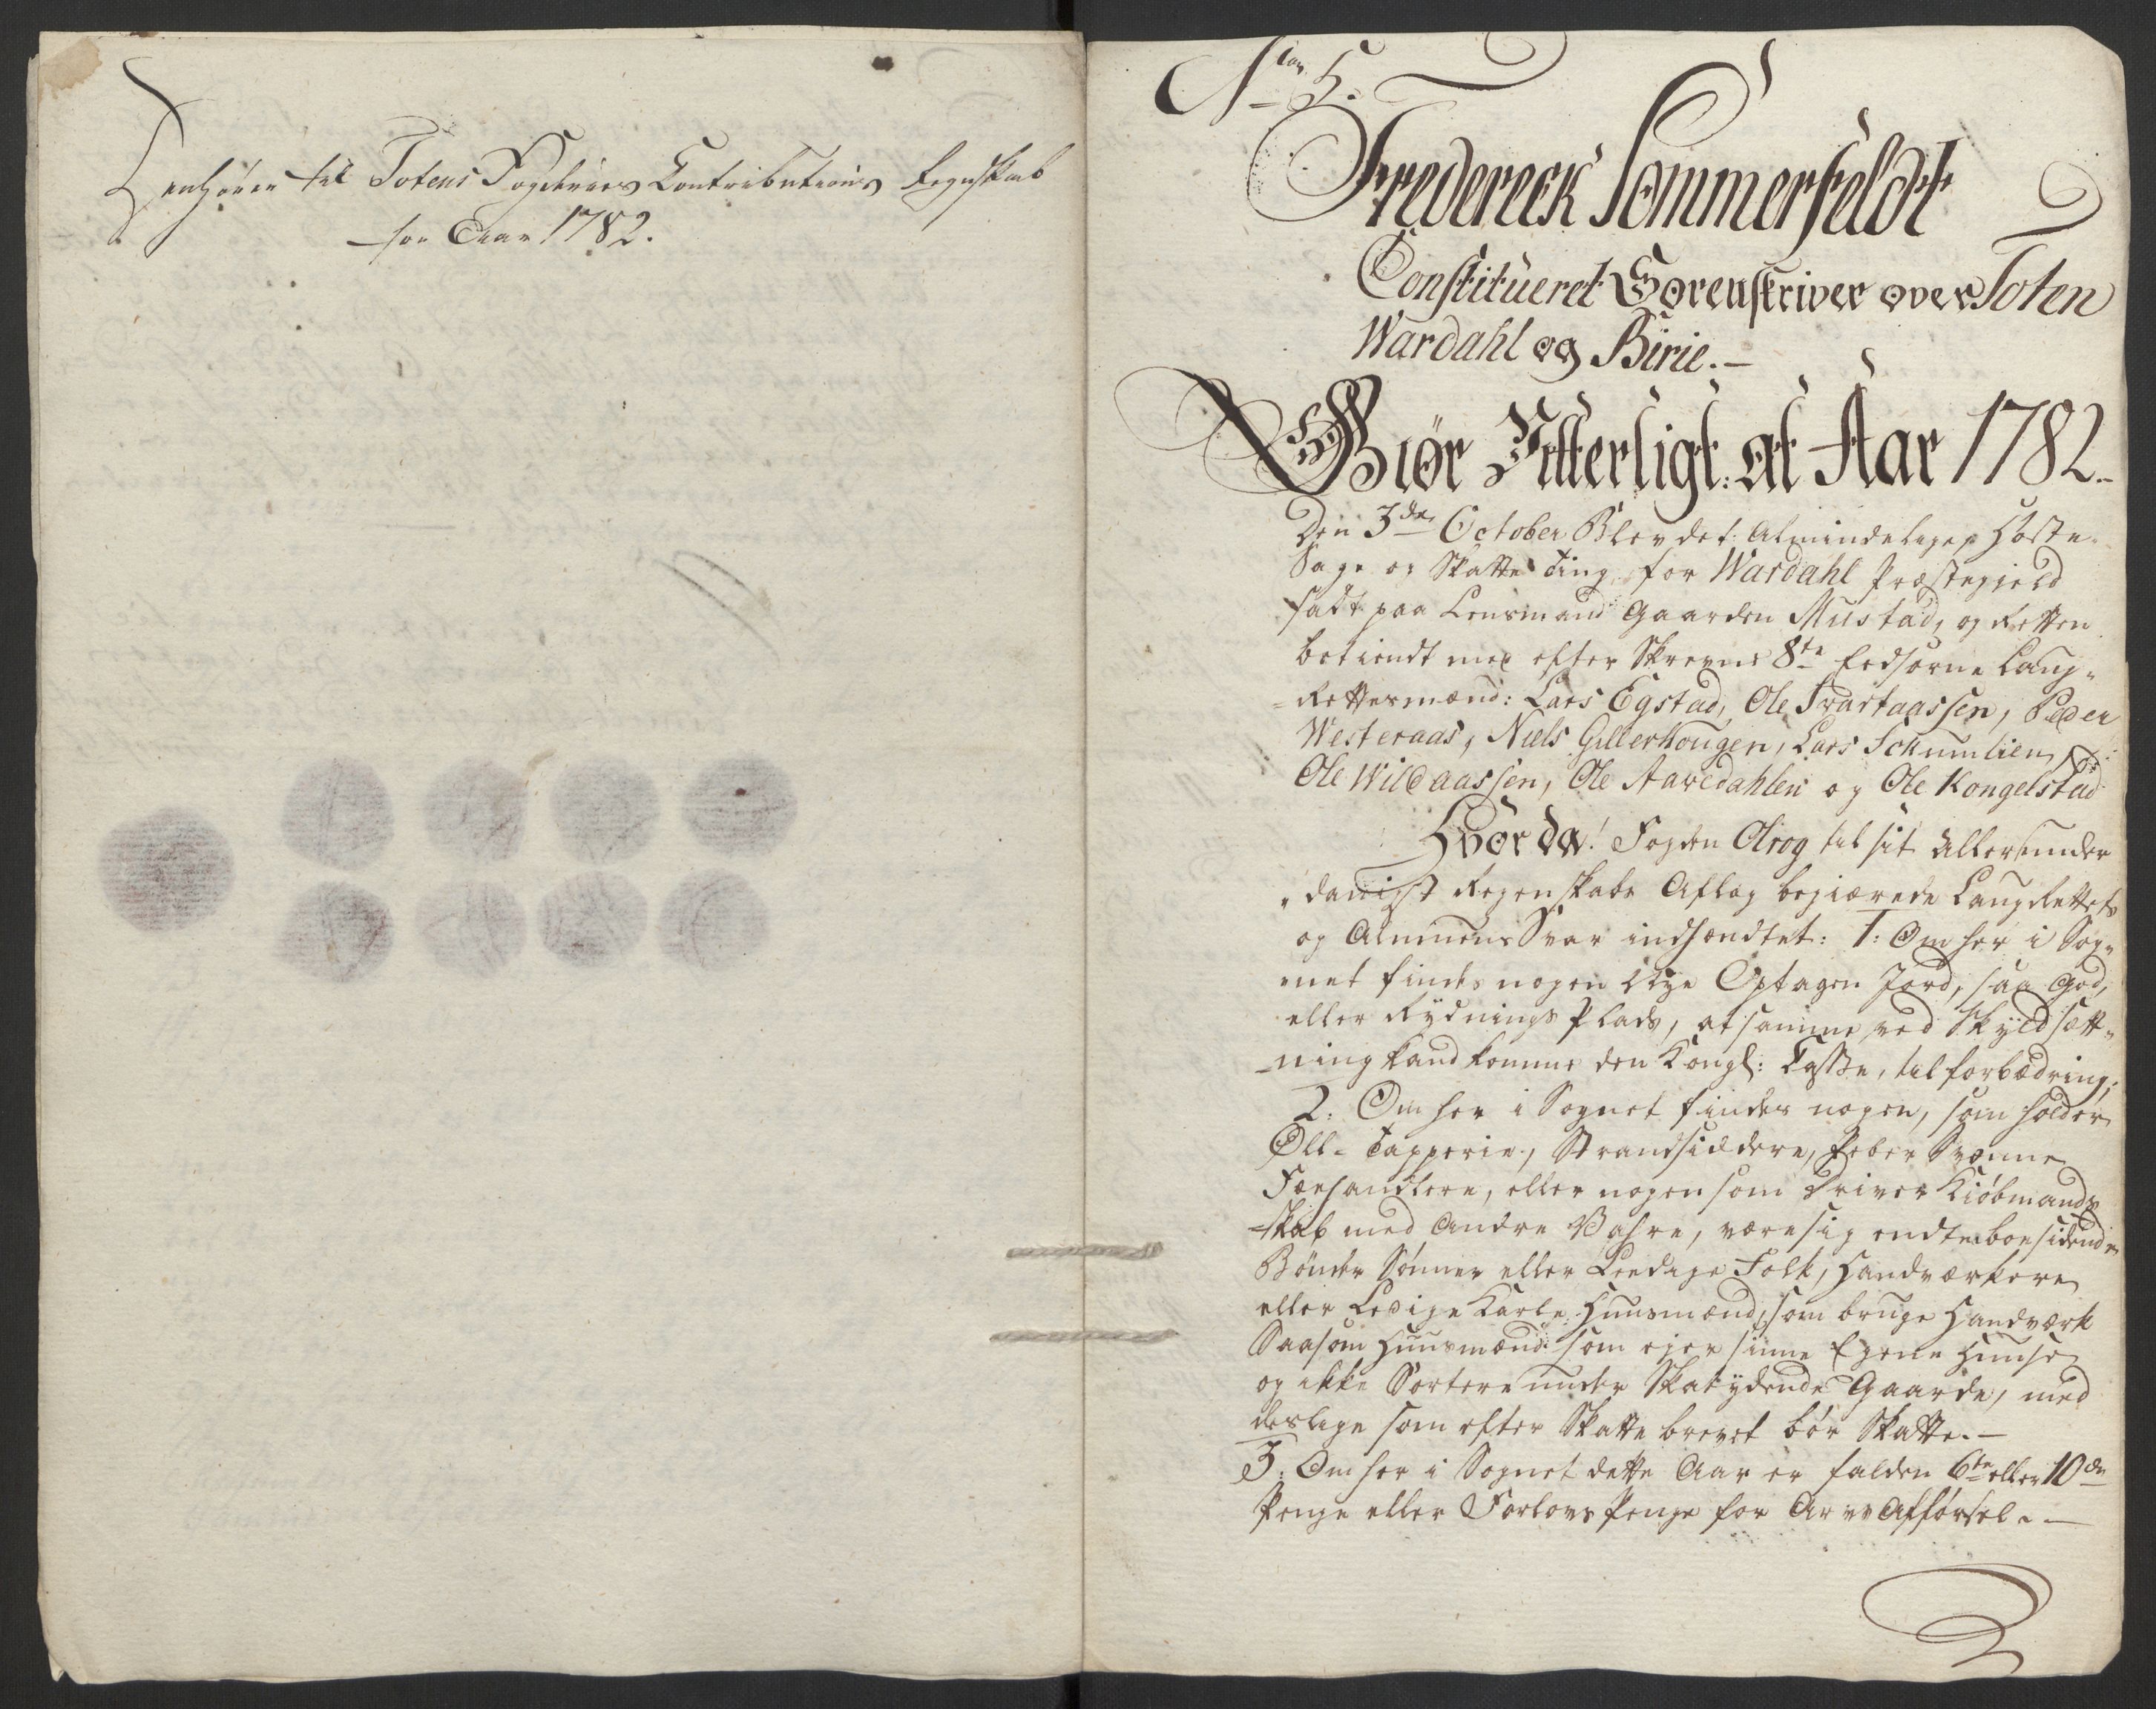 Henhører til Totens Fogderies Contributions Regnskab
for Aar 1782.
No. 5.
Fredereck Sommerfeldt
Constitueret Sorenskriver over Toten
Wardahl og Birie.-
Giør Vitterligt: at Aar 1782.
Den 3de October Blev det Almindelige Høste
Sage og Skatte Ting for Wardahl Præstegield
sadt paa Lensmand Gaarden Mustad, og Retten
betiendt med efter Skrevne 8te Eedsorne Laug-
Rettesmænd: Lars Egstad, Ole Svartaassen, Peder
Westeraas, Niels Gillerhougen, Lars Schumlien,
Ole Wildaassen, Ole Aavedahlen og Ole Kongelstad
Hvor da! Fogden Olrog til sit allerunder-
danigst Regenskabs Aflæg begiærede LaugRettets
og Almuens Svar indhændtet: 1: Om her i Sog-
net findes nogen Nye Optagen Jord, saa god,
eller Rydnings Plads, at samme ved Skyldsætt-
ning kand komme den Kongl: Casse, til forbedring;
2. Om her i Sognet findes nogen, som holder
Øll-Tapperie, Strandsiddere, Peber Svenne
Fæehandlere, eller nogen som Driver Kiøbmand-
skab med Andre Vahre, være sig endten boesidende
Bønder Sønner eller Leedige Folk, Handværkere
eller Ledige Karle, Huusmænd, som bruge Handværk
Saasom Huusmænd som ejer sinne Egene Huuse
og ikke Sortere under Skatydende Gaarde, med
deslige som efter Skatte brevet bør Skatte.-
3. Om her i Sognet dette Aar er falden 6te eller 10de
Penge eller Forlovs Penge for Arve Afførsel.-